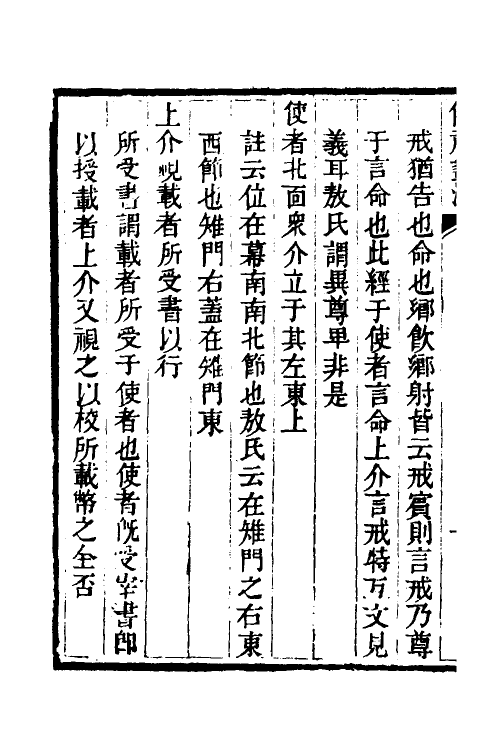 戒猶告也命也鄉飲鄉射皆云戒賓則言戒乃尊
于言命也此經于使者言命上介言戒特互文見
義耳敖氏謂異尊卑非是
使者北面衆介立于其左東上
註云位在幕南南北節也敖氏云在雉門之右東
西節也雉門右蓋在雉門東
上介視載者所受書以行
所受書謂載者所受于使者也使者旣受宰書卽
以授載者上介又視之以校所載幣之全否